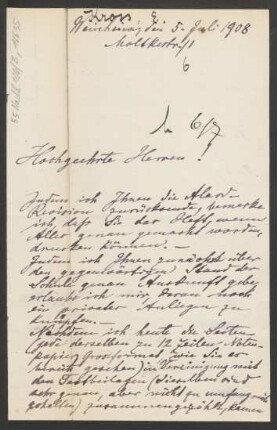 Kross E
den 5. Juli 1908
Moltkestr. 11
6
6/7
Hochgeehrte Herren!
Indem ich Ihnen die Alard-
Revision zurücksende, bemerke
ich, daß Sie das Heft, wenn
Alles genau gemacht worden,
drucken können. –
Indem ich Ihnen zunächst über
den gegenwärtigen Stand der
Schule genau Auskunft gebe,
erlaube ich mir, daran noch
ein privates Anliegen zu
Nachdem ich heute die Seiten
(jede derselben zu 12 Zeilen Noten-
papier Grossformat
gesehen) in Vereinigung mit
den Textbeilagen (dieselben sind
sehr genau, aber nicht zu umfang
gehalten) zusammengezählt, kann